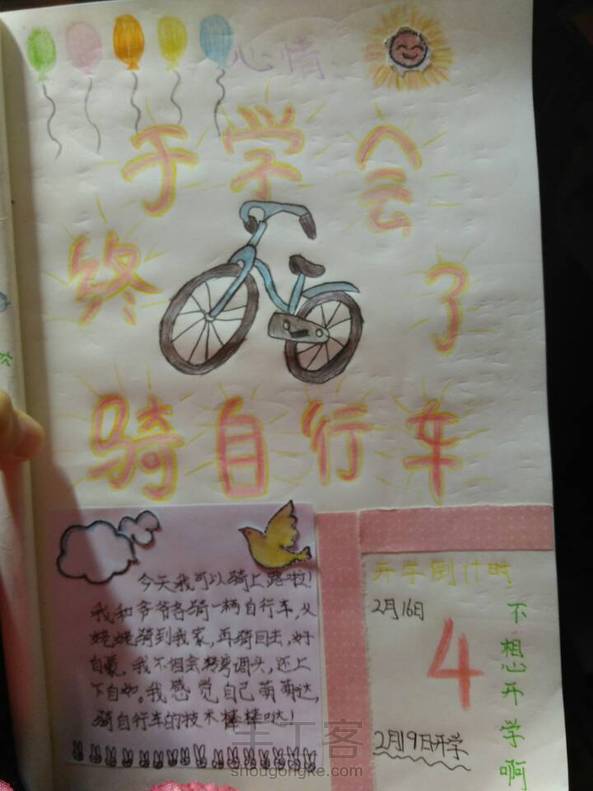 心情
终于学会了
骑自行车
今天我可以骑上路啦!
我和爷爷各骑一辆自行车,从
姥姥骑到我家,再骑回去,好
自豪。我不但会转弯调头,还上
下自如。我感觉自己萌萌达,
骑自行车的技术棒棒哒!
开学倒计时
2月16日
4
2月19日开学
不想开学啊
手工客
shougongke.com